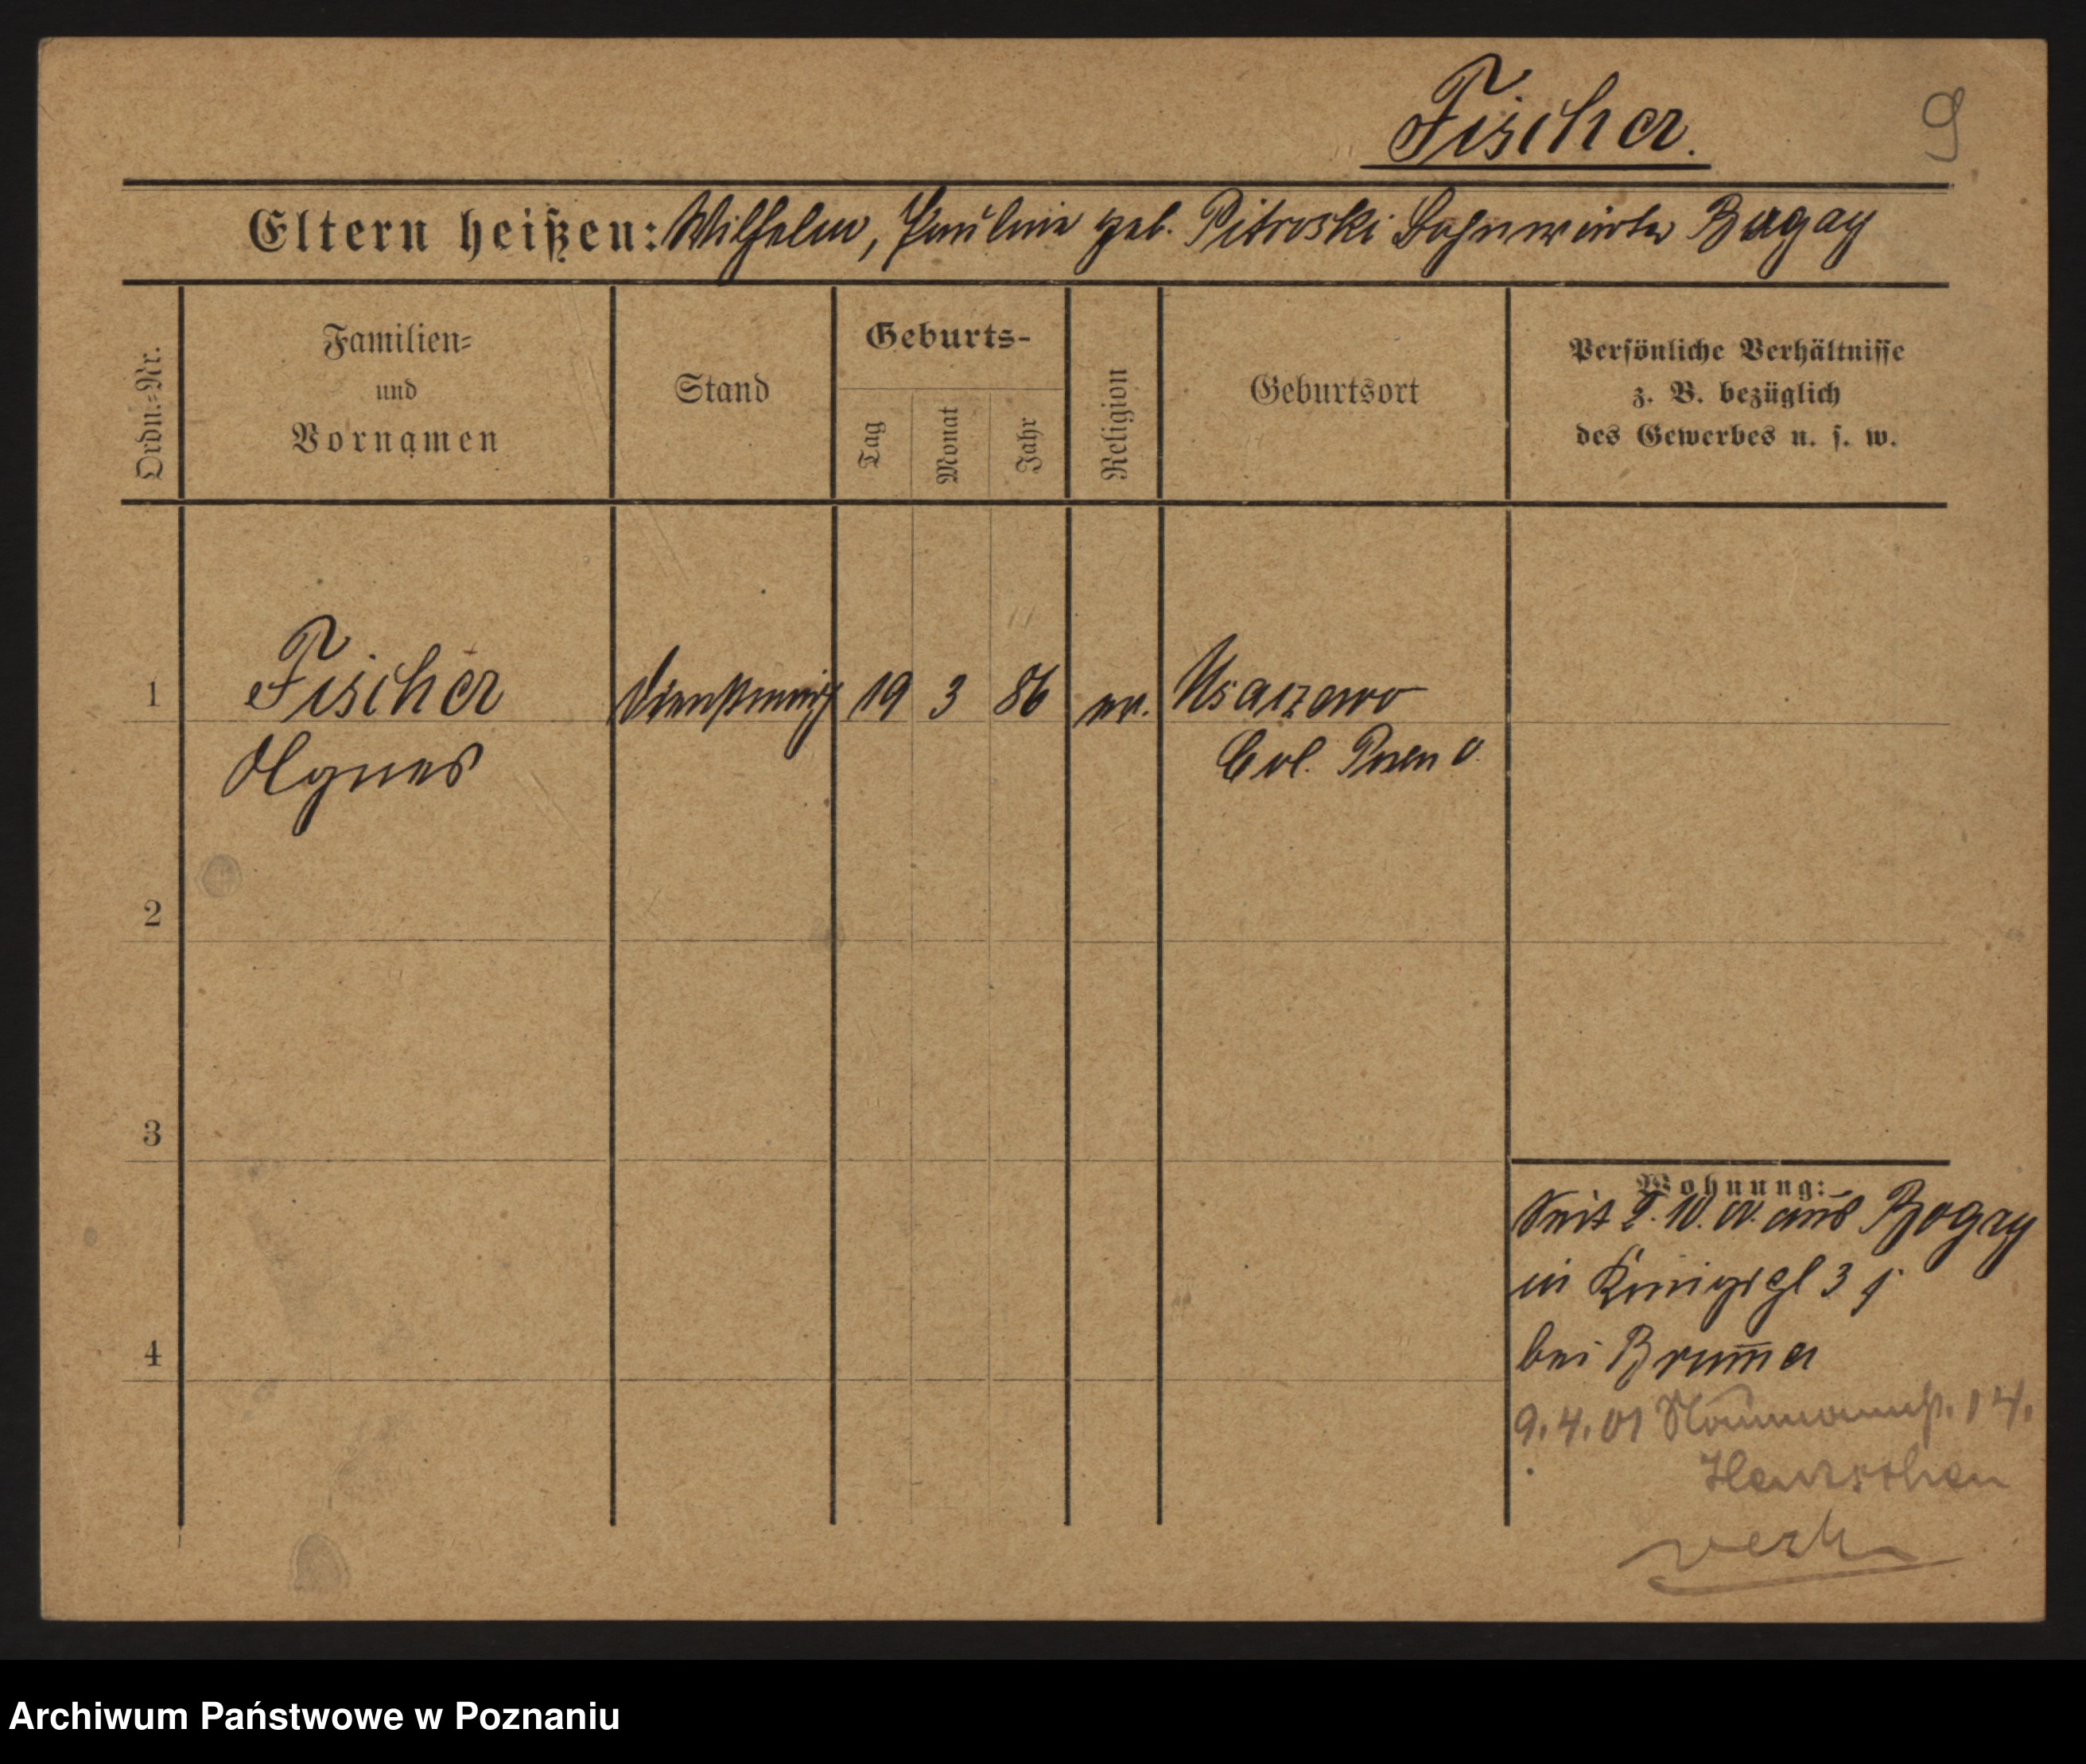 Fischer.
9
Eltern heißen: Wilhelm, Pauline geb. Pitroski Bahnwärter Bagay
Ordn.-Nr.
Familien-
und
Vornamen
Stand
Geburts-
Tag
Monat
Jahr
Religion
Geburtsort
Persönliche Verhältnisse
z. B. bezüglich
des Gewerbes u. s. w.
1 Fischer 19 3 86 ev. Usarzewo
Agnes Posen O.
2
3
Wohnung:
Seit 2. 10. 01. aus Bogay
in Königspl 3
4 bei Brummer
9.4.01 Naumannstr. 14.
verh
Archiwum Państwowe w Poznaniu